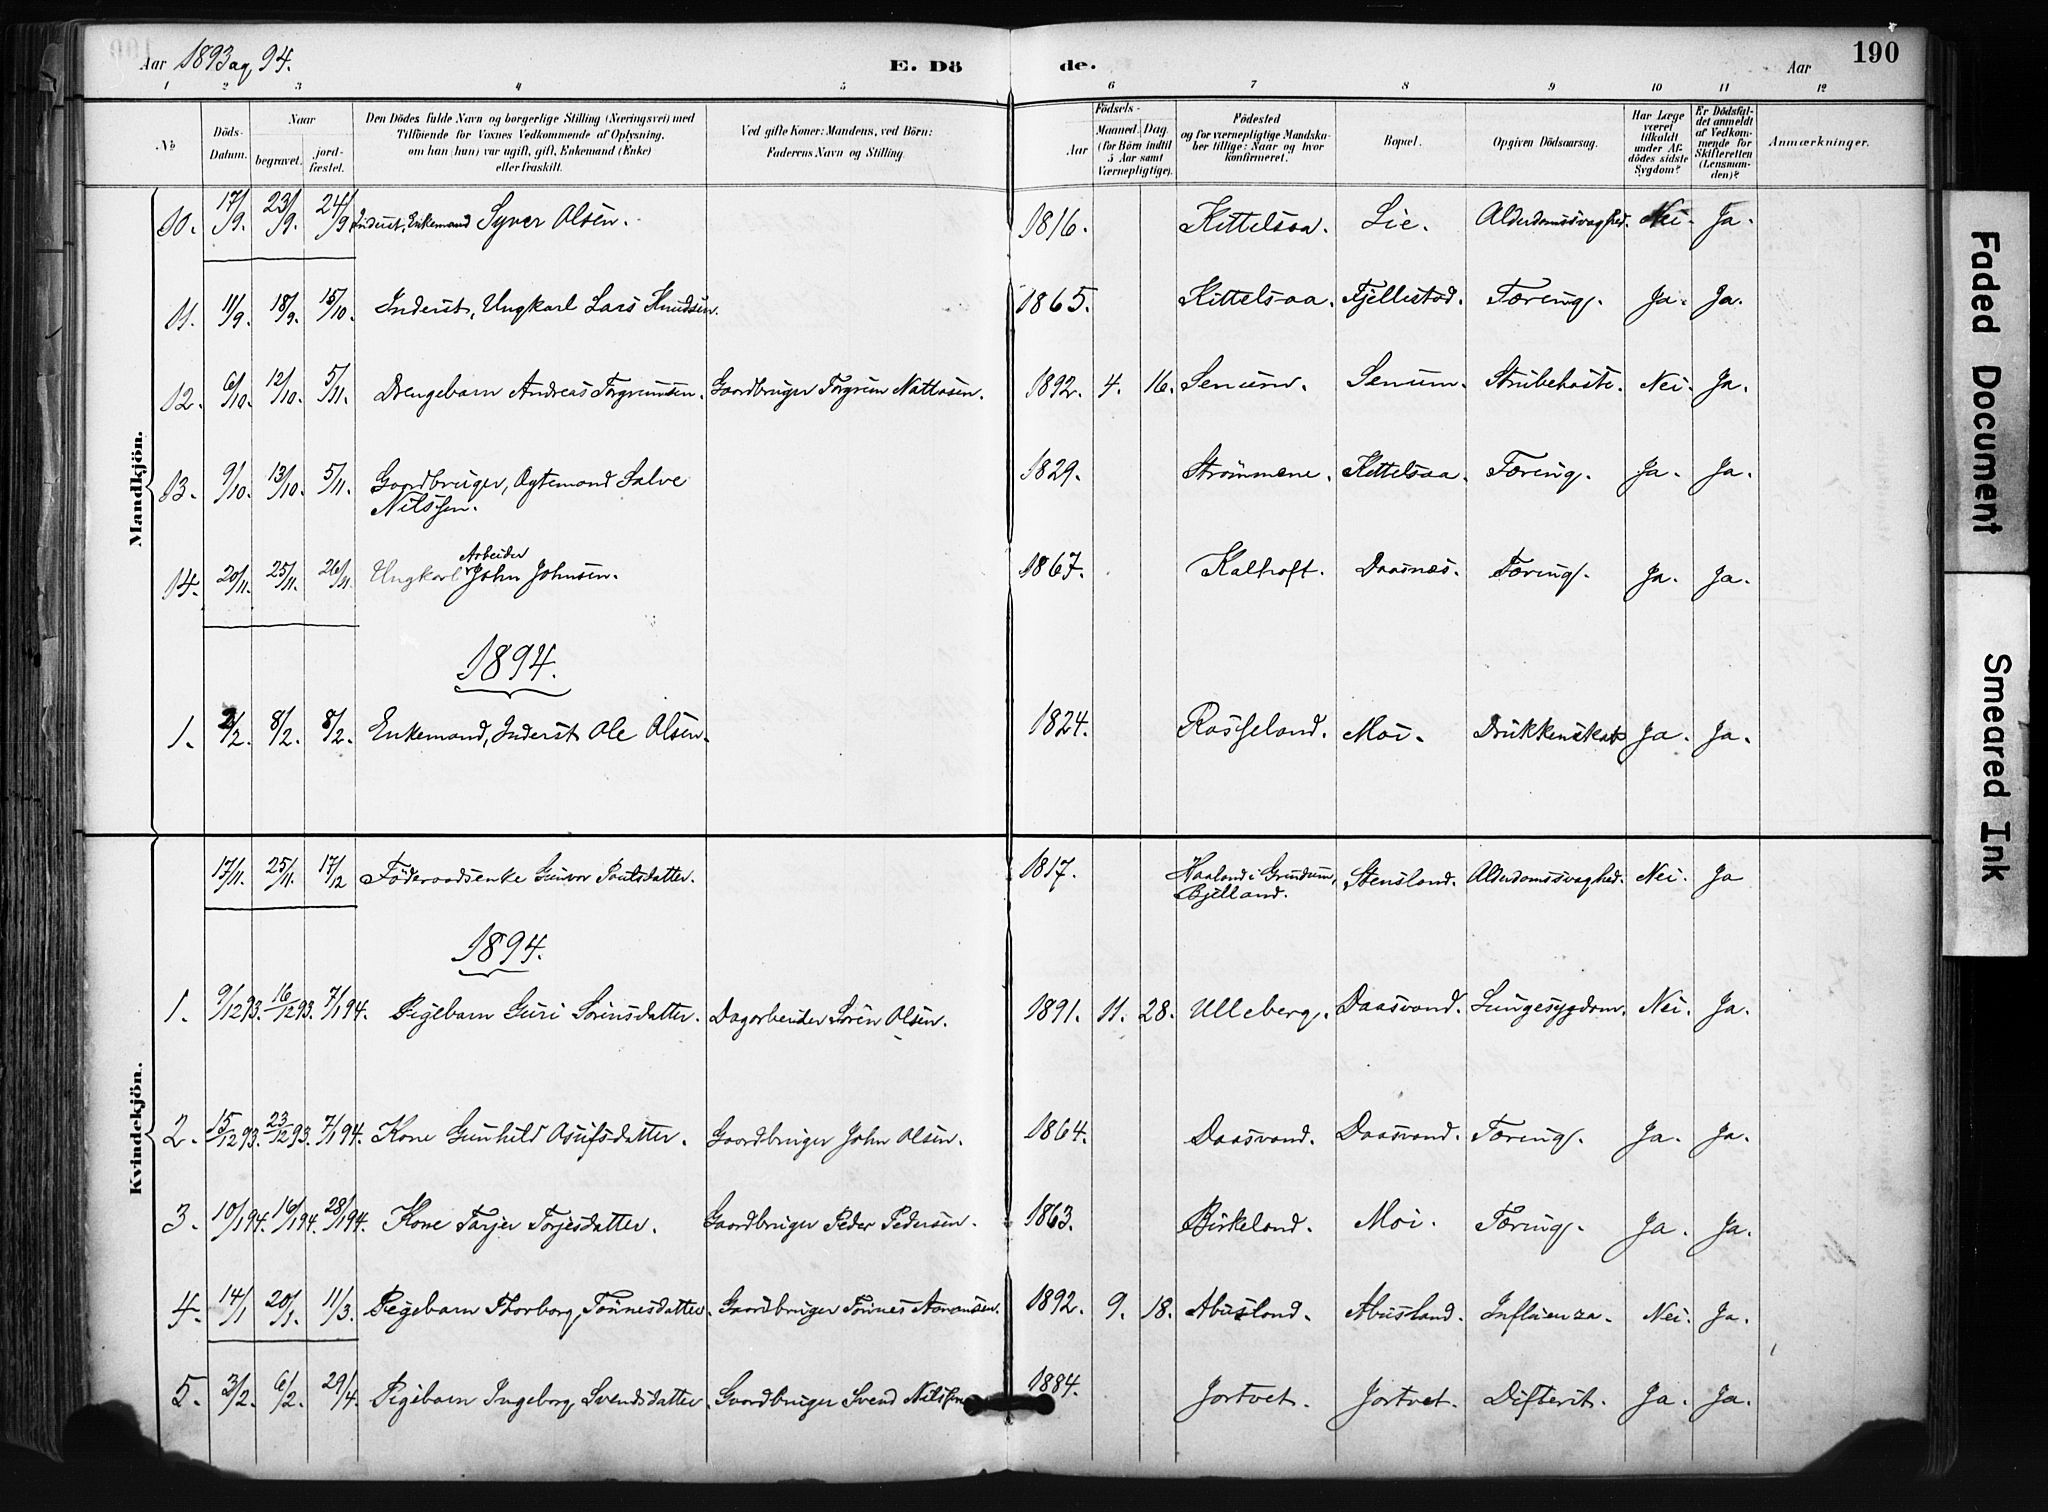 Aar 1893 og 94.
E. Dö
de.
Aar
190
1 2 3 4 5 6 7 8 9 10 11 12
No
Döds-Datum.
Naar
begravet.
jord-fæstet.
Den Dödes fulde Navn og borgerlige Stilling (Næringsvei) med
Tilföiende for Voxnes Vedkommende af Oplysning,
om han (hun) var ugift, gift, Enkemand (Enke)
eller fraskilt.
Ved gifte Koner: Mandens, ved Börn:
Faderens Navn og Stilling.
Födsels-
Aar
Maaned. Dag
(for Börn indtil
5 Aar samt
Værnepligtige).
Födested
og for værnepligtige Mandska-
ber tillige: Naar og hvor
konfirmeret.
Bopæl.
Opgiven Dödsaarsag.
Har Læge
været
tilkaldt
under Af-
dödes sidste
Sygdom?
Er Dödsfal-
det anmeldt
af Vedkom-
mende for
Skifteretten
(Lensman-
den)?
Anmærkninger.
Mandkjön.
10. 17/9. 23/9. 24/9 Inderst, Enkemand Syver Olsen. 1816. Kittelsaa. Lie. Alderdomssvaghed. Nei. Ja.
11. 11/9. 18/9. 15/10. Inderst, Ungkarl Lars Knudsen. 1865. Kittelsaa. Fjellestad. Tæring. Ja. Ja.
12. 6/10. 12/10. 5/11. Drengebarn Andreas Torgrimsen. Gaardbruger Torgrim Nattosen. 1892. 4. 16. Senum. Senum. Strubehoste. Nei. Ja.
13. 9/10. 13/10. 5/11. Gaardbruger, Ægtemand Salve
Nilssen. 1829. Strømmene. Kittelsaa. Tæring. Ja. Ja.
14. 20/11. 25/11. 26/11. Ungkarl Arbeider John Johnsen. 1867. Kaltroft. Daasnæs. Tæring. Ja. Ja.
1894.
1. 2/2. 8/2. 8/2. Enkemand, Inderst Ole Olsen. 1824. Rosseland. Moi. Drukkenskab Ja. Ja.
Kvindekjön.
17/11. 25/11. 17/12 Föderaadsenke Gunvor Paulsdatter. 1817. Haaland i Grindum,
Bjelland. Stensland. Alderdomssvaghed. Nei. Ja
1894.
1. 9/12 93. 16/12 93. 7/1 94. Pigebarn Guri Sørensdatter. Dagarbeider Sören Olsen. 1891. 11. 28. Ulleberg. Daasvand. Lungesygdom. Nei. Ja.
2. 15/12 93. 23/12 93. 7/1 94. Kone Gunhild Osufsdatter. Gaardbruger John Olsen. 1864. Daasvand. Daasvand. Tæring. Ja. Ja.
3. 10/1 94. 16/1 94. 28/1 94. Kone Tarjer Torjesdatter. Gaardbruger Peder Pedersen. 1863. Birkeland. Moi. Tæring. Ja. Ja.
4. 14/1 20/1. 11/3. Pigebarn Thorborg Tönnesdatter. Gaardbruger Tönnes Aavansen. 1892. 9. 18. Abusland. Abusland. Influenza. Nei. Ja.
5. 3/2. 6/2. 29/4. Pigebarn Ingeborg Svendsdatter. Gaardbruger Svend Nilssen 1884. Jortvet. Jortvet. Difterit. Ja. Ja.
Faded Document
Smeared Ink